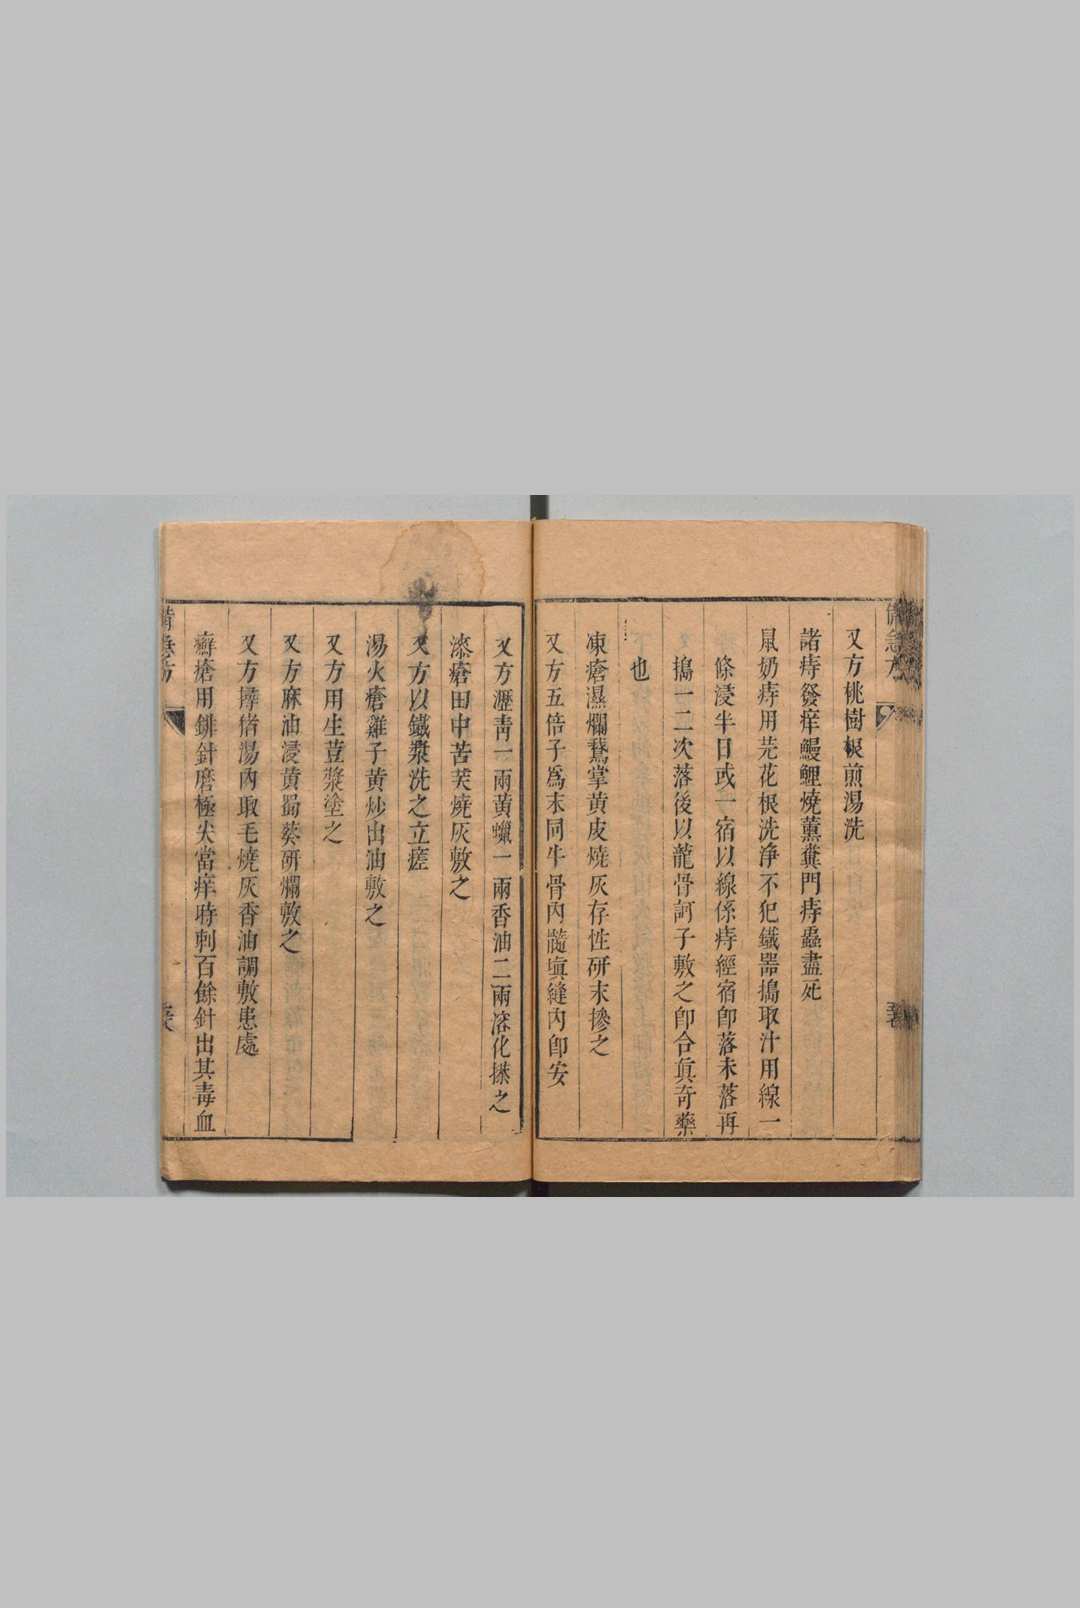 又方桃樹根煎湯洗
諸痔發痒鰻鯉燒薰糞門痔蟲盡死
鼠奶痔用芫花根洗淨不犯鐵器搗取汁用線一
條浸半日或一宿以線係痔經宿卽落未落再
搗一二次落後以龍骨訶子敷之卽合眞奇藥
也
凍瘡濕爛鵞掌黃皮燒灰存性研末摻之
又方五倍子爲末同牛骨內髓塡縫內卽安
又方瀝靑一兩黃蠟一兩香油二兩溶化搽之
漆瘡田中苦芙燒灰敷之
又方以鐵漿洗之立瘥
湯火瘡雞子黃炒出油敷之
又方用生荳漿塗之
又方麻油浸黃蜀葵研爛敷之
又方撏猪湯內取毛燒灰香油調敷患處
癬瘡用鈹針磨極尖當痒時刺百餘針出其毒血
備急方